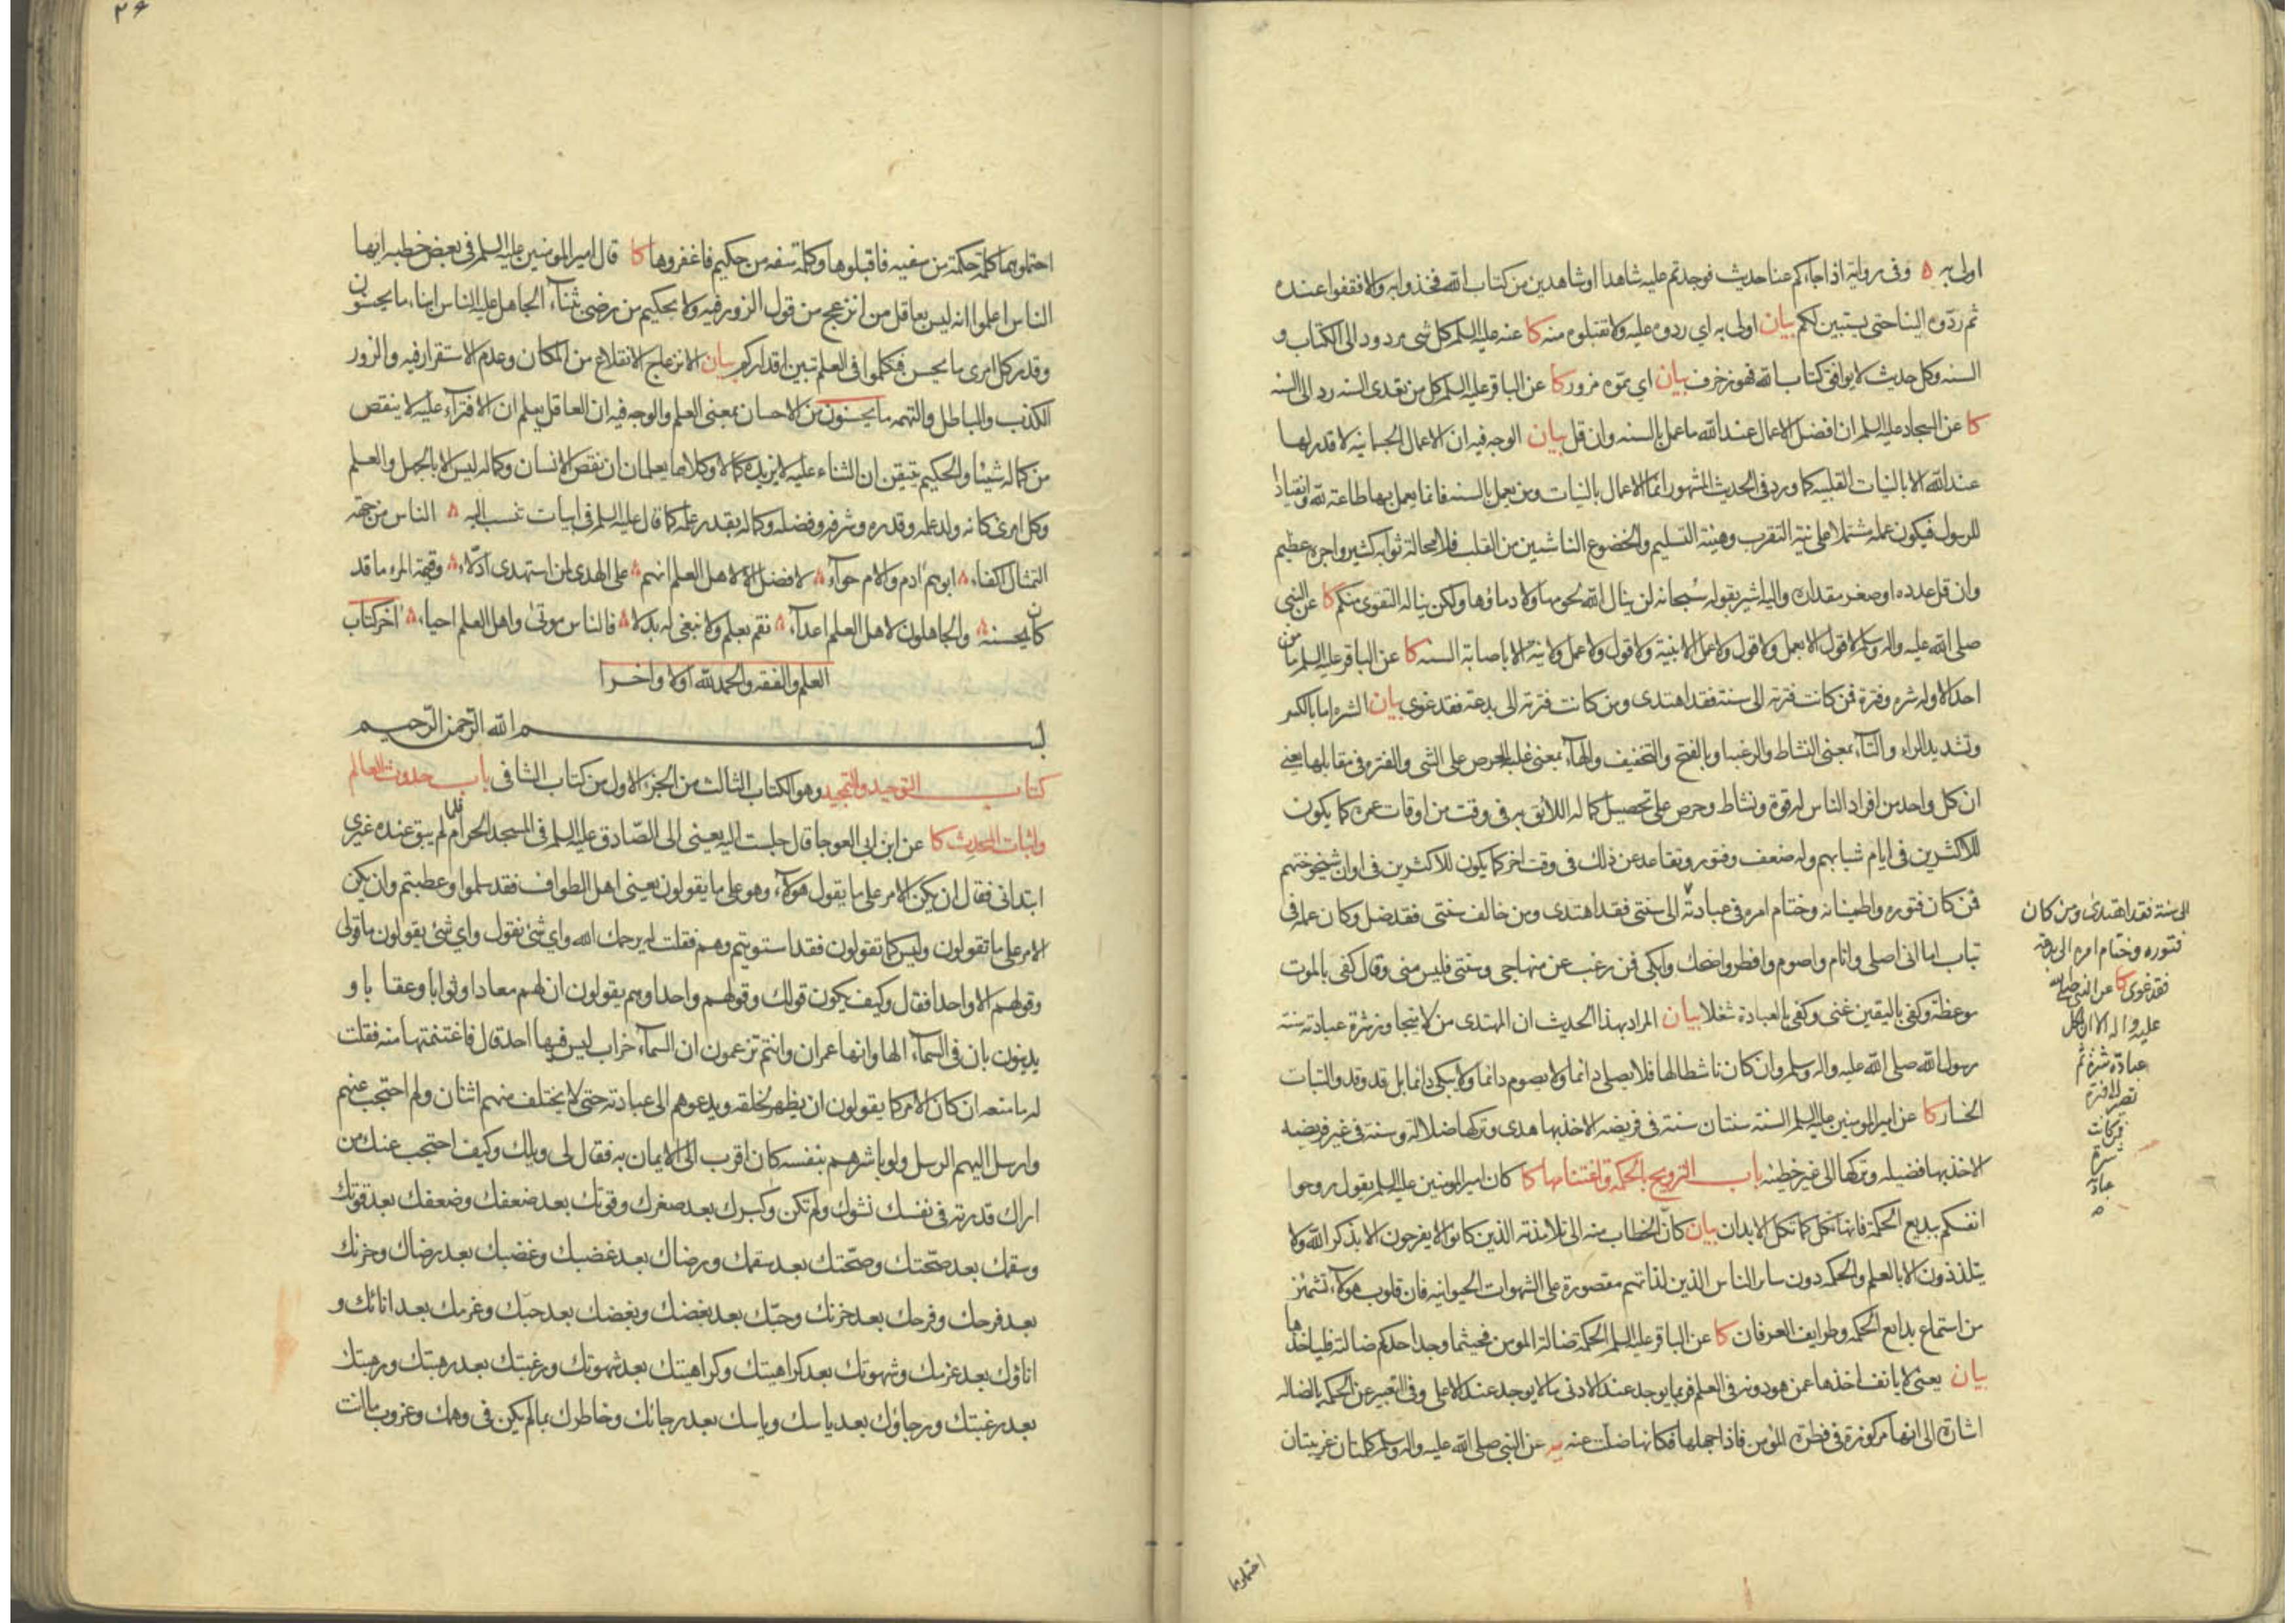 اولى به ۵ وفى رواية اذا جاءكم عنا حديث فوجدتم عليه شاهدا او شاهدين من كتاب الله فخذوا به والا فقفوا عنده
ثم ردّوه الينا حتى يستبين لكم بيان اولى به اي ردوه عليه ولا تقبلوه منه كا عنه عليه السلم كل شى مردود الى الكتاب و
السنه وكل حديث لا يوافق كتاب الله فهو زخرف بيان اي مموّه مزور كا عن الباقر عليه السلم كل من تعدى السنه رد الى السنه
كا عن السجاد عليه السلم ان افضل الاعمال عند الله ما عمل بالسنه وان قل بيان الوجه فيه ان الاعمال الجسمانيه لا قدر لها
عند الله الا بالنيات القلبيه كما ورد فى الحديث المشهور انما الاعمال بالنيات ومن يعمل بالسنه فانما يعمل بها طاعة لله وانقيادا
للرسول فيكون عمله مشتملا على نية التقرب وهيئة التسليم والخضوع الناشيين من القلب فلا محالة ثوابه كثير واجره عظيم
وان قل عدده او صغر مقداره واليه اشير بقوله سبحانه لن ينال الله لحومها ولا دماؤها ولكن يناله التقوى منكم كا عن النبي
صلى الله عليه واله وسلم لا قول الا بعمل ولا قول ولا عمل الا بنية ولا قول ولا عمل ولا نية الا باصابة السنه كا عن الباقر عليه السلم ما من
احد الا وله شره وفترة فمن كانت فترته الى سنة فقد اهتدى ومن كانت فترته الى بدعة فقد غوى بيان الشره اما بالكسر
وتشديد الراء والتآء بمعنى النشاط والرغبه او بالفتح والتخفيف والهآء بمعنى غلبة الحرص على الشى والفتره فى مقابلها يعنى
ان كل واحد من افراد الناس له قوة ونشاط وحرص على تحصيل كماله اللائق به فى وقت من اوقات عمره كما يكون
للاكثرين فى ايام شبابهم وله ضعف وفتور وتقاعد عن ذلك فى وقت اخر كما يكون للاكثرين فى اوان شيخوختهم
فمن كان فتوره واطمينانه وختام امره فى عبادته الى سنتى فقد اهتدى ومن خالف سنتى فقد ضل وكان عمله فى
تباب اما انى اصلى وانام واصوم وافطر واضحك وابكى فمن رغب عن منهاجى وسنتى فليس منى وقال كفى بالموت
موعظة وكفى باليقين غنى وكفى بالعبادة شغلا بيان المراد بهذا الحديث ان المهتدى من لا يتجاوز شرة عبادته سنة
رسول الله صلى الله عليه واله وسلم وان كان ناشطا لها فلا يصلى دائما ولا يصوم دائما ولا يبكى دائما بل قد وقد والتباب
الخسار كا عن امير المومنين عليه السلم السنة سنتان سنة فى فريضه الاخذ بها هدى وتركها ضلالة وسنة فى غير فريضه
الاخذ بها فضيله وتركها الى غير خطيئه باب الترويح بالحكمة واغتنامها كا كان امير المومنين عليه السلم يقول روحوا
انفسكم ببديع الحكمة فانها تكل كما تكل الابدان بيان كان الخطاب منه الى تلامذته الذين كانوا لا يفرحون الا بذكر الله ولا
يتلذذون الا بالعلم والحكمه دون ساير الناس الذين لذاتهم مقصورة على الشهوات الحيوانيه فان قلوب هولاء تشمئز
من استماع بدايع الحكمه وطرايف العرفان كا عن الباقر عليه السلم الحكمة ضالة المومن فحيثما وجد احدكم ضالته فلياخذها
بيان يعنى لا يانف اخذها عمن هو دونه فى العلم فربما يوجد عند الادنى ما لا يوجد عند الاعلى وفى التعبير عن الحكمه بالضاله
اشارة الى انها مركوزة فى فطرة المؤمن فاذا جهلها فكانها ضلت عنه يه عن النبي صلى الله عليه واله وسلم كلمتان غريبتان
الى سنة فقد اهتدى ومن كان
فتوره وختام امره الى بدعة
فقد غوى كا عن النبي صلى الله
عليه واله الا ان لكل
عبادة شرة ثم
تصير الى فترة
فمن كانت
شرة
عبادته
احتملوهما
٢۶
احتملوهما كلمة حكمة من سفيه فاقبلوها وكلمة سفه من حكيم فاغفروها كا قال امير المومنين عليه السلم فى بعض خطبه ايها
الناس اعلموا انه ليس بعاقل من انزعج من قول الزور فيه ولا بحكيم من رضى بثنآء الجاهل عليه الناس ابناء ما يحسنون
وقدر كل امرى ما يحسن فتكلموا فى العلم تبين اقداركم بيان الانزعاج الانقلاع من المكان وعدم الاستقرار فيه والزور
الكذب والباطل والتهمه ما يحسنون من الاحسان بمعنى العلم والوجه فيه ان العاقل يعلم ان الافترآء عليه لا ينقص
من كماله شيئا والحكيم يتيقن ان الثناء عليه لا يزيده كمالا وكلاهما يعلمان ان نقص الانسان وكماله ليس الا بالجهل والعلم
وكل امرى كانه ولد علمه وقدره وشرفه وفضله وكماله بقدر علمه كما قال عليه السلم فى ابيات تنسب اليه ۸ الناس من جهة
التمثال اكفاء ۸ ابوهم ادم والام حوآء ۸ لا فضل الا لاهل العلم انهم ۸ على الهدى لمن استهدى ادلّاء ۸ وقيمة المرء ما قد
كان يحسنه ۸ والجاهلون لاهل العلم اعدآء ۸ فقم بعلم ولا تبغى له بدلا ۸ فالناس موتى واهل العلم احياء ۸ اخر كتاب
العلم والفقه والحمد لله اولا واخرا
بسم الله الرحمن الرحيم
كتاب التوحيد والتمجيد وهو الكتاب الثالث من الجزء الاول من كتاب الشافى باب حدوث العالم
واثبات المحدث كا عن ابن ابى العوجا قال جلست اليه يعنى الى الصادق عليه السلم فى المسجد الحرام فلما لم يبق عنده غيرى
ابتدانى فقال ان يكن الامر على ما يقول هولآء وهو على ما يقولون يعنى اهل الطواف فقد سلموا وعطبتم وان يكن
الامر على ما تقولون وليس كما تقولون فقد استويتم وهم فقلت له يرحمك الله واي شئ نقول واي شئ يقولون ما قولى
وقولهم الا واحدا فقال وكيف يكون قولك وقولهم واحدا وهم يقولون ان لهم معادا وثوابا وعقابا و
يدينون بان فى السمآء الها وانها عمران وانتم تزعمون ان السمآء خراب ليس فيها احد قال فاغتنمتها منه فقلت
له ما منعه ان كان الامر كما يقولون ان يظهر لخلقه ويدعوهم الى عبادته حتى لا يختلف منهم اثنان ولم احتجب عنهم
وارسل اليهم الرسل ولو باشرهم بنفسه كان اقرب الى الايمان به فقال لى ويلك وكيف احتجب عنك من
اراك قدرته فى نفسك نشوك ولم تكن وكبرك بعد صغرك وقوتك بعد ضعفك وضعفك بعد قوتك
وسقمك بعد صحتك وصحتك بعد سقمك ورضاك بعد غضبك وغضبك بعد رضاك وحزنك
بعد فرحك وفرحك بعد حزنك وحبك بعد بغضك وبغضك بعد حبك وعزمك بعد اناتك و
اناؤك بعد عزمك وشهوتك بعد كراهيتك وكراهيتك بعد شهوتك ورغبتك بعد رهبتك ورهبتك
بعد رغبتك ورجاؤك بعد ياسك وياسك بعد رجائك وخاطرك بما لم يكن فى وهمك وعزوب ما انت